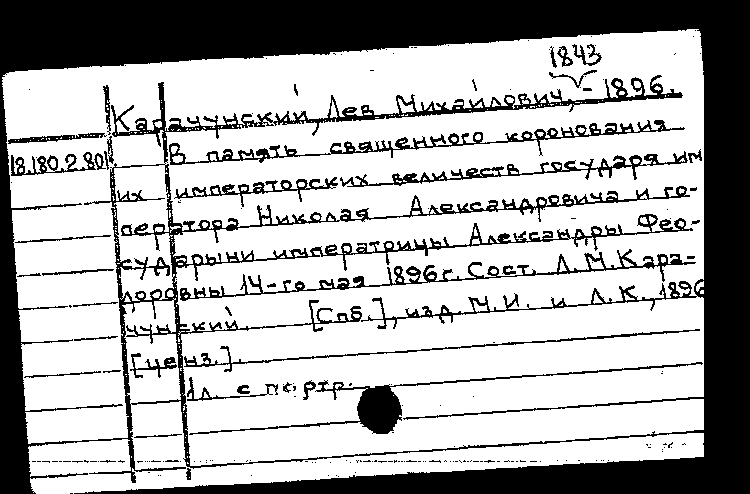 1843
Карачунский, Лев Михайлович, - 1896.
18.180.2.801
В память священного коронования
их императорских величеств государя им
ператора Николая Александровича и го-
сударыни императрицы Александры Фео-
доровны 14-го мая 1896г. Сост. Л.М.Кара=
чунский. [Спб.], изд. М.И. и Л.К., 1896
[ценз.].
1л. с портр.